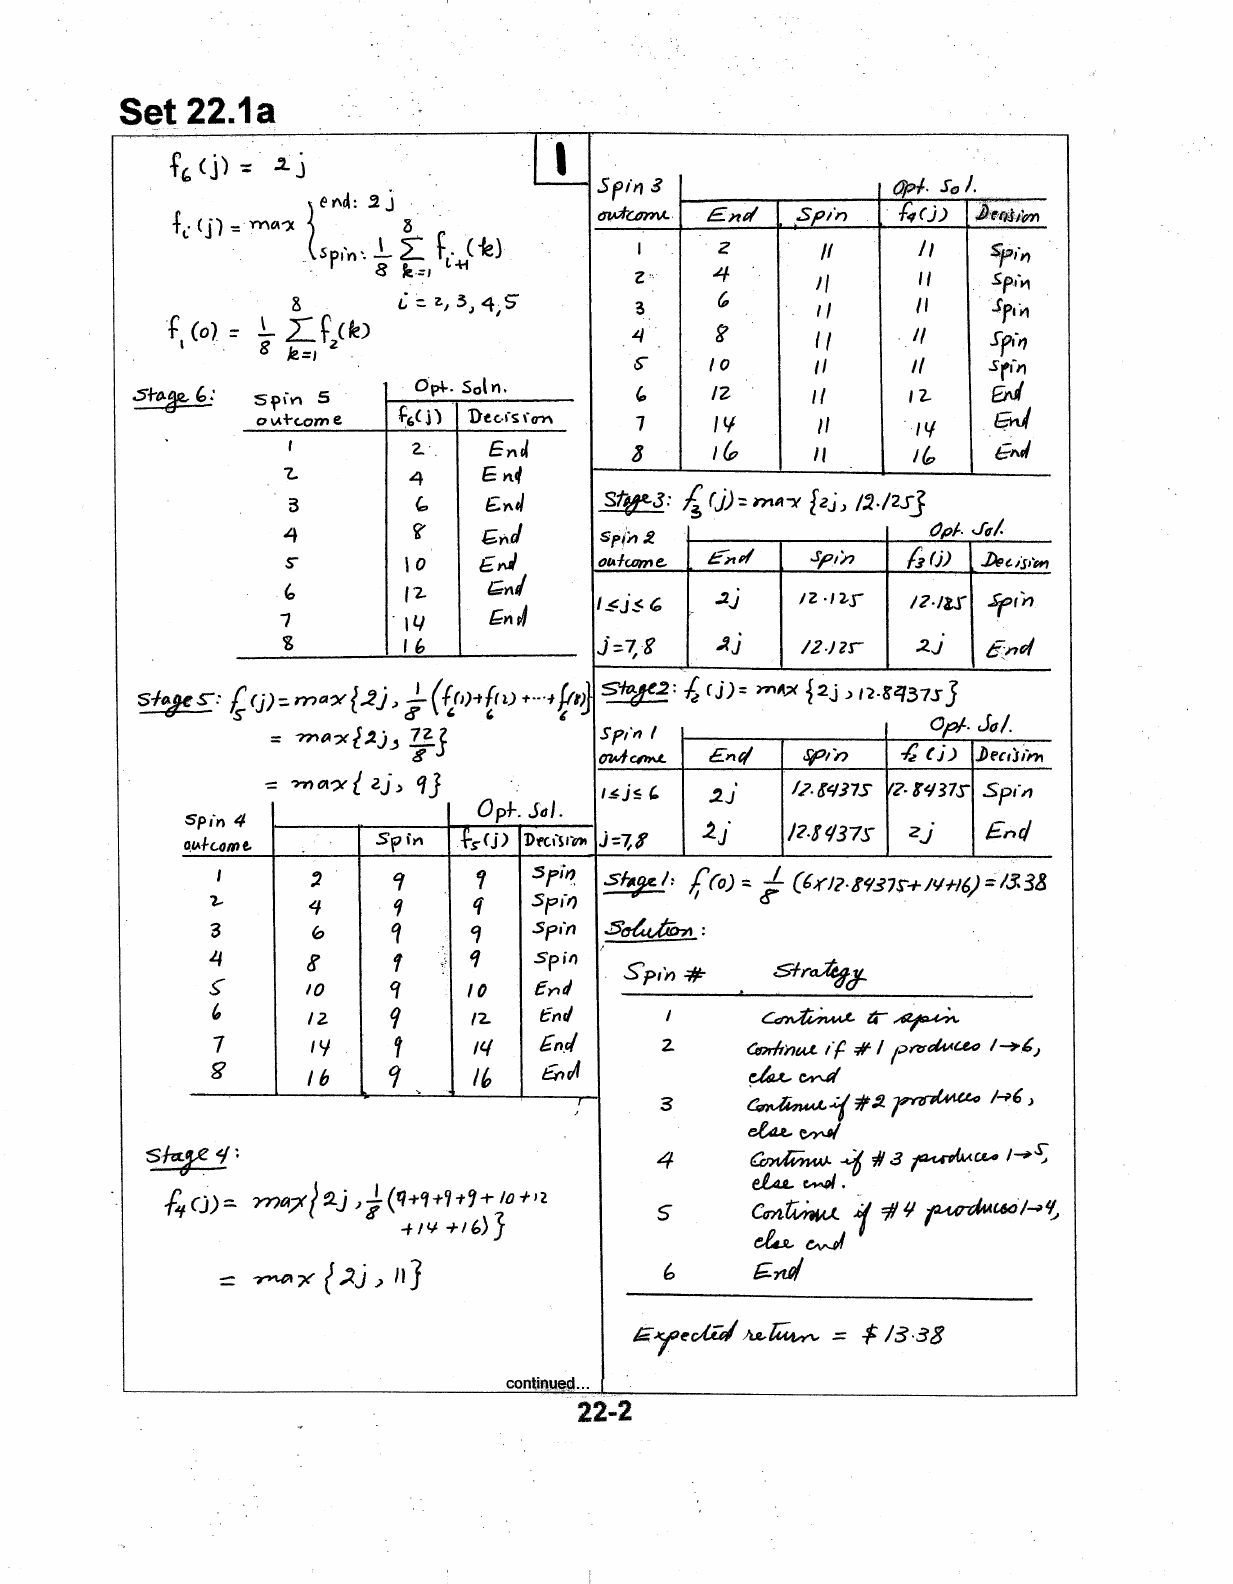 Set 22.1a
1
f₆(j) = 2j
f_i(j) = max { end: 2j
spin: 1/8 Σ_{k=1}^{8} f_{i+1}(k)
i = 2, 3, 4, 5
f₁(0) = 1/8 Σ_{k=1}^{8} f₂(k)
Stage 6:
Spin 5 Opt. Soln.
outcome f₆(j) Decision
1 2 End
2 4 End
3 6 End
4 8 End
5 10 End
6 12 End
7 14 End
8 16
Stage 5: f₅(j) = max{2j, 1/8 (f₆(1)+f₆(2)+···+f₆(8)}
= max{2j, 72/8}
= max{2j, 9}
Spin 4 Opt. Sol.
outcome Spin f₅(j) Decision
1 2 9 9 Spin
2 4 9 9 Spin
3 6 9 9 Spin
4 8 9 9 Spin
5 10 9 10 End
6 12 9 12 End
7 14 9 14 End
8 16 9 16 End
Stage 4:
f₄(j) = max{2j, 1/8 (9+9+9+9+10+12
+14+16)}
= max{2j, 11}
continued...
Spin 3 Opt. Sol.
outcome End Spin f₄(j) Decision
1 2 11 11 Spin
2 4 11 11 Spin
3 6 11 11 Spin
4 8 11 11 Spin
5 10 11 11 Spin
6 12 11 12 End
7 14 11 14 End
8 16 11 16 End
Stage 3: f₃(j) = max{2j, 12.125}
Spin 2 Opt. Sol.
outcome End Spin f₃(j) Decision
1≤j≤6 2j 12.125 12.125 Spin
j=7,8 2j 12.125 2j End
Stage 2: f₂(j) = max{2j, 12.84375}
Spin 1 Opt. Sol.
outcome End Spin f₂(j) Decision
1≤j≤6 2j 12.84375 12.84375 Spin
j=7,8 2j 12.84375 2j End
Stage 1: f₁(0) = 1/8 (6×12.84375+14+16) = 13.38
Solution:
Spin # Strategy
1 Continue to spin
2 Continue if #1 produces 1→6,
else end
3 Continue if #2 produces 1→6,
else end
4 Continue if #3 produces 1→5,
else end.
5 Continue if #4 produces 1→4,
else end
6 End
Expected return = $13.38
22-2